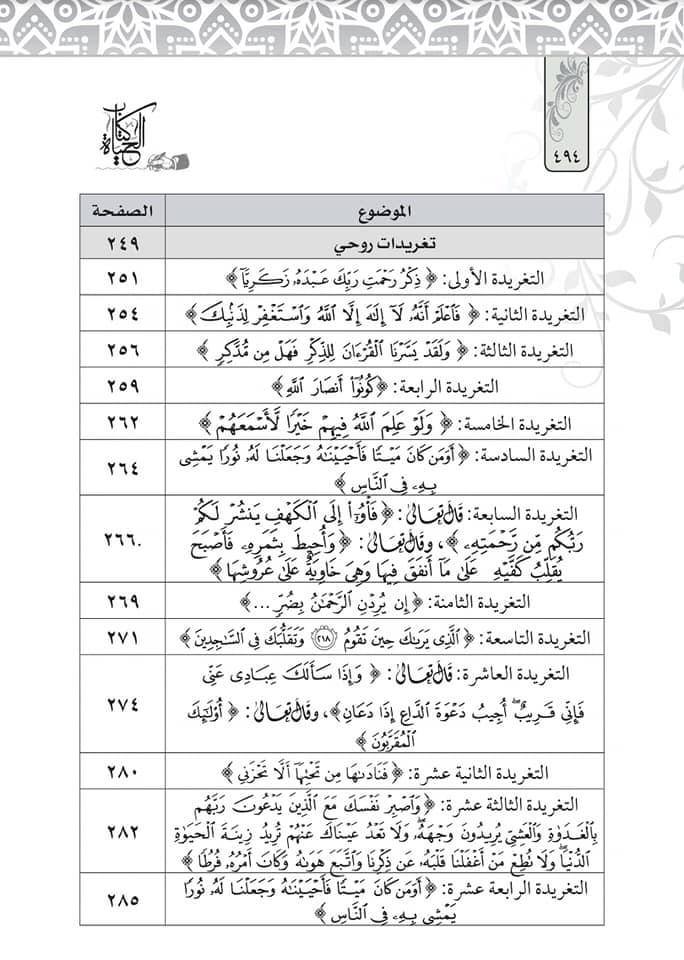 كتاب الحياة
٤٩٤
الموضوع الصفحة
تغريدات روحي ٢٤٩
التغريدة الأولى: ﴿ ذِكْرُ رَحْمَتِ رَبِّكَ عَبْدَهُۥ زَكَرِيَّآ ﴾ ٢٥١
التغريدة الثانية: ﴿ فَٱعْلَمْ أَنَّهُۥ لَآ إِلَٰهَ إِلَّا ٱللَّهُ وَٱسْتَغْفِرْ لِذَنۢبِكَ ﴾ ٢٥٤
التغريدة الثالثة: ﴿ وَلَقَدْ يَسَّرْنَا ٱلْقُرْءَانَ لِلذِّكْرِ فَهَلْ مِن مُّدَّكِرٍ ﴾ ٢٥٦
التغريدة الرابعة: ﴿كُونُوٓا۟ أَنصَارَ ٱللَّهِ ﴾ ٢٥٩
التغريدة الخامسة: ﴿ وَلَوْ عَلِمَ ٱللَّهُ فِيهِمْ خَيْرًا لَّأَسْمَعَهُمْ ﴾ ٢٦٢
التغريدة السادسة: ﴿ أَوَمَن كَانَ مَيْتًا فَأَحْيَيْنَٰهُ وَجَعَلْنَا لَهُۥ نُورًا يَمْشِى
بِهِۦ فِى ٱلنَّاسِ ﴾ ٢٦٤
التغريدة السابعة: قَالَ تَعَالَىٰ: ﴿ فَأْوُۥٓا۟ إِلَى ٱلْكَهْفِ يَنشُرْ لَكُمْ
رَبُّكُم مِّن رَّحْمَتِهِۦ ﴾، وقَالَ تَعَالَىٰ: ﴿ وَأُحِيطَ بِثَمَرِهِۦ فَأَصْبَحَ
يُقَلِّبُ كَفَّيْهِ عَلَىٰ مَآ أَنفَقَ فِيهَا وَهِىَ خَاوِيَةٌ عَلَىٰ عُرُوشِهَا ﴾ ٢٦٦.
التغريدة الثامنة: ﴿ إِن يُرِدْنِ ٱلرَّحْمَٰنُ بِضُرٍّ ...﴾ ٢٦٩
التغريدة التاسعة: ﴿ ٱلَّذِى يَرَىٰكَ حِينَ تَقُومُ ﴿٢١٨﴾ وَتَقَلُّبَكَ فِى ٱلسَّٰجِدِينَ ﴾ ٢٧١
التغريدة العاشرة: قَالَ تَعَالَىٰ: ﴿ وَإِذَا سَأَلَكَ عِبَادِى عَنِّى
فَإِنِّى قَرِيبٌ أُجِيبُ دَعْوَةَ ٱلدَّاعِ إِذَا دَعَانِ ﴾، وقَالَ تَعَالَىٰ: ﴿ أُو۟لَٰٓئِكَ
ٱلْمُقَرَّبُونَ ﴾ ٢٧٤
التغريدة الثانية عشرة: ﴿ فَنَادَىٰهَا مِن تَحْتِهَآ أَلَّا تَحْزَنِى ﴾ ٢٨٠
التغريدة الثالثة عشرة: ﴿ وَٱصْبِرْ نَفْسَكَ مَعَ ٱلَّذِينَ يَدْعُونَ رَبَّهُم
بِٱلْغَدَوٰةِ وَٱلْعَشِىِّ يُرِيدُونَ وَجْهَهُۥ وَلَا تَعْدُ عَيْنَاكَ عَنْهُمْ تُرِيدُ زِينَةَ ٱلْحَيَوٰةِ
ٱلدُّنْيَا وَلَا تُطِعْ مَنْ أَغْفَلْنَا قَلْبَهُۥ عَن ذِكْرِنَا وَٱتَّبَعَ هَوَىٰهُ وَكَانَ أَمْرُهُۥ فُرُطًا ﴾ ٢٨٢
التغريدة الرابعة عشرة: ﴿ أَوَمَن كَانَ مَيْتًا فَأَحْيَيْنَٰهُ وَجَعَلْنَا لَهُۥ نُورًا
يَمْشِى بِهِۦ فِى ٱلنَّاسِ ﴾ ٢٨٥